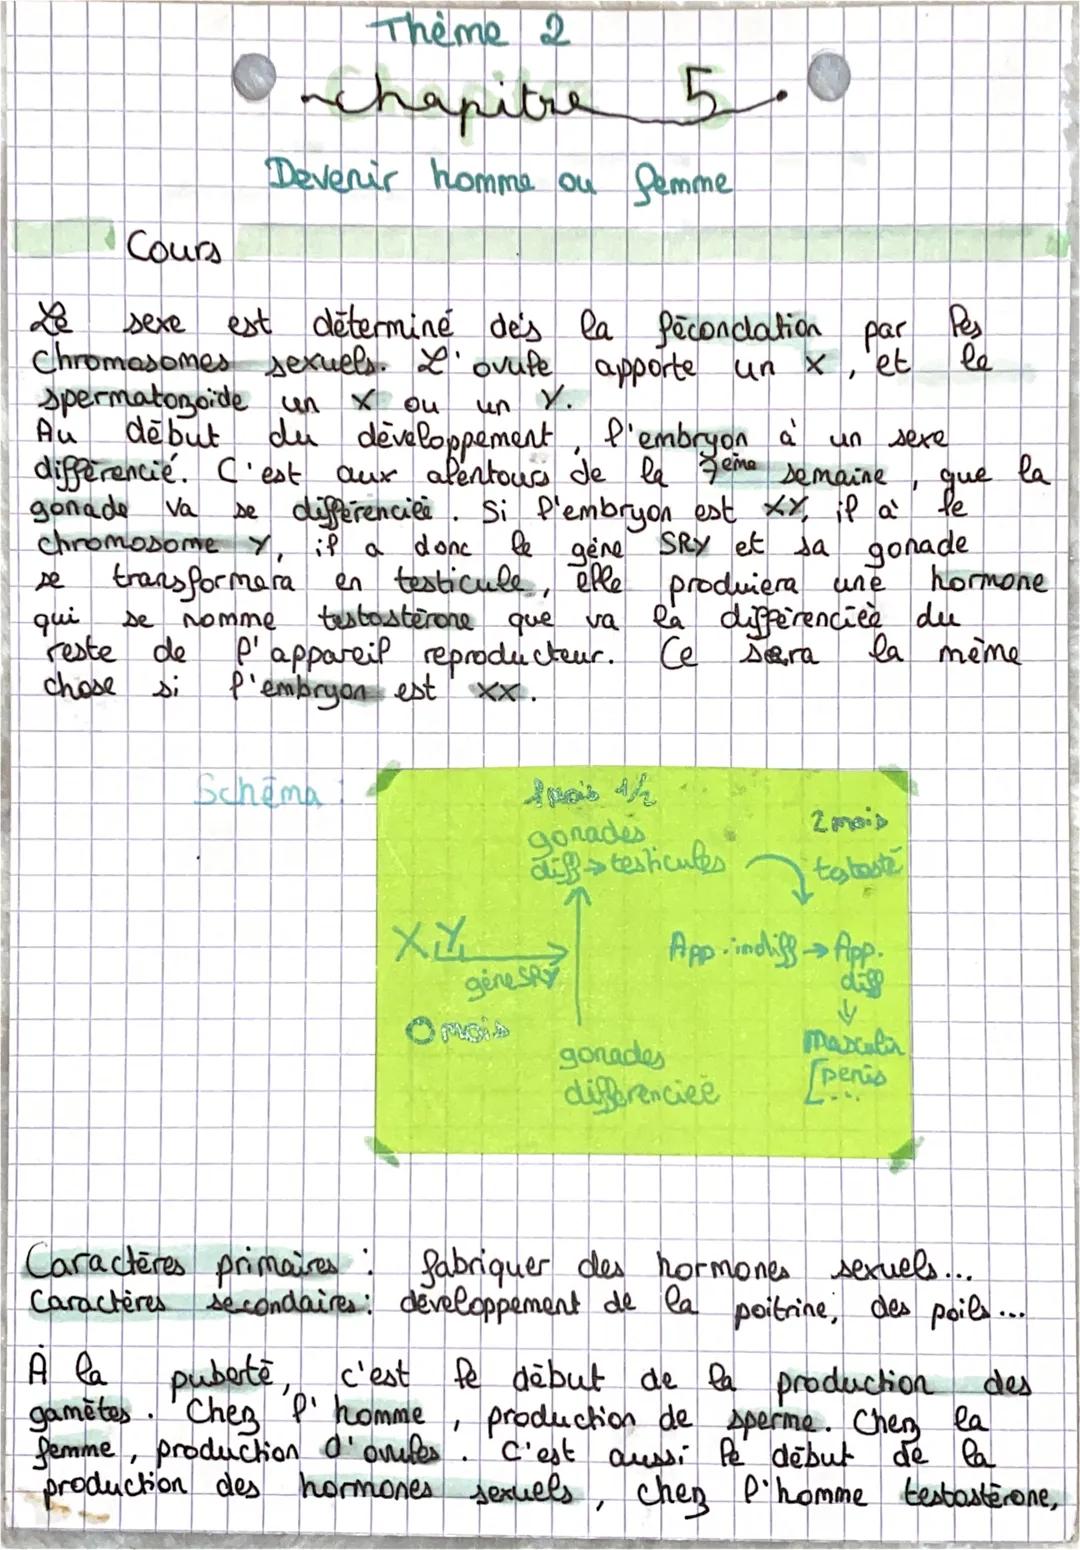 Thème 2
Chapitre 5
Devenir homme ou femme
Cours
Le sexe est déterminé dès la fécondation par les
chromosomes sexuels. L'ovule apporte un X, et le
spermatozoide un X ou un Y.
Au début du développement, l'embryon à un sexe
différencié. C'est aux alentours de la 7ème semaine, que la
gonade va se différenciée. Si l'embryon est XY, il a le
chromosome Y, il a donc le gène SRY et sa gonade
se transformera en testicule, elle produiera une hormone
qui se nomme testostérone que va la différenciée du
reste de l'appareil reproducteur. Ce sera la même
chose si l'embryon est XX.
Schéma :
1 mois 1/2
gonades
diff → testicules
2 mois
testosté
XY
gène SRY
App. indiff → App.
diff
0 mois
masculin
[penis
...
gonades
différenciée
Caractères primaires : fabriquer des hormones sexuels...
Caractères secondaires : développement de la poitrine, des poils...
À la puberté, c'est le début de la production des
gamètes. Chez l'homme, production de sperme. Chez la
femme, production d'ovules. C'est aussi le début de la
production des hormones sexuels, chez l'homme testostérone,